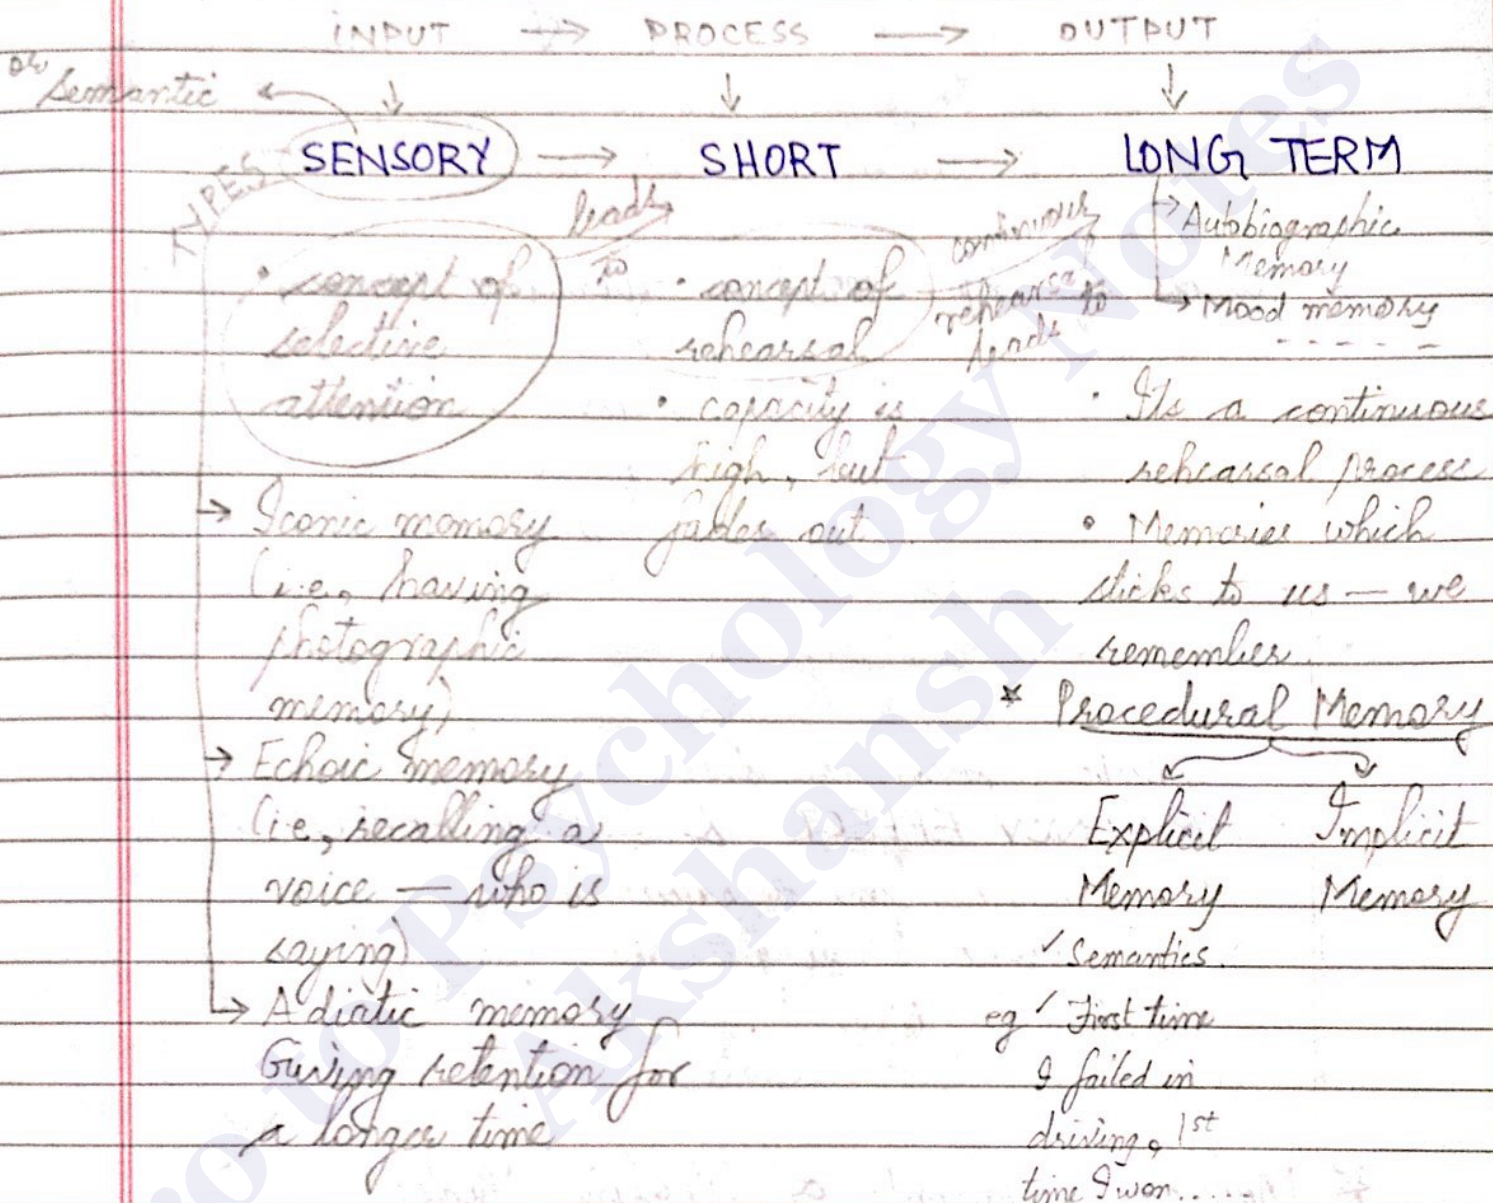 INPUT → PROCESS → OUTPUT
or Semantic
SENSORY → SHORT → LONG TERM
TYPES
leads to
continuous rehearsal leads to
→ Autobiographic Memory
→ Mood memory
• concept of
selective
attention
→ Iconic memory
(i.e, having
photographic
memory)
→ Echoic memory
(i.e, recalling a
voice — who is
saying)
→ Adiatic memory
Giving retention for
a longer time
• concept of
rehearsal
• capacity is
high, but
fades out
• Its a continuous
rehearsal process
• Memories which
sticks to us — we
remember
* Procedural Memory
Explicit Implicit
Memory Memory
✓ Semantics
eg ✓ First time
I failed in
driving, 1st
time I won.....
to Psychology Notes
Akshansh